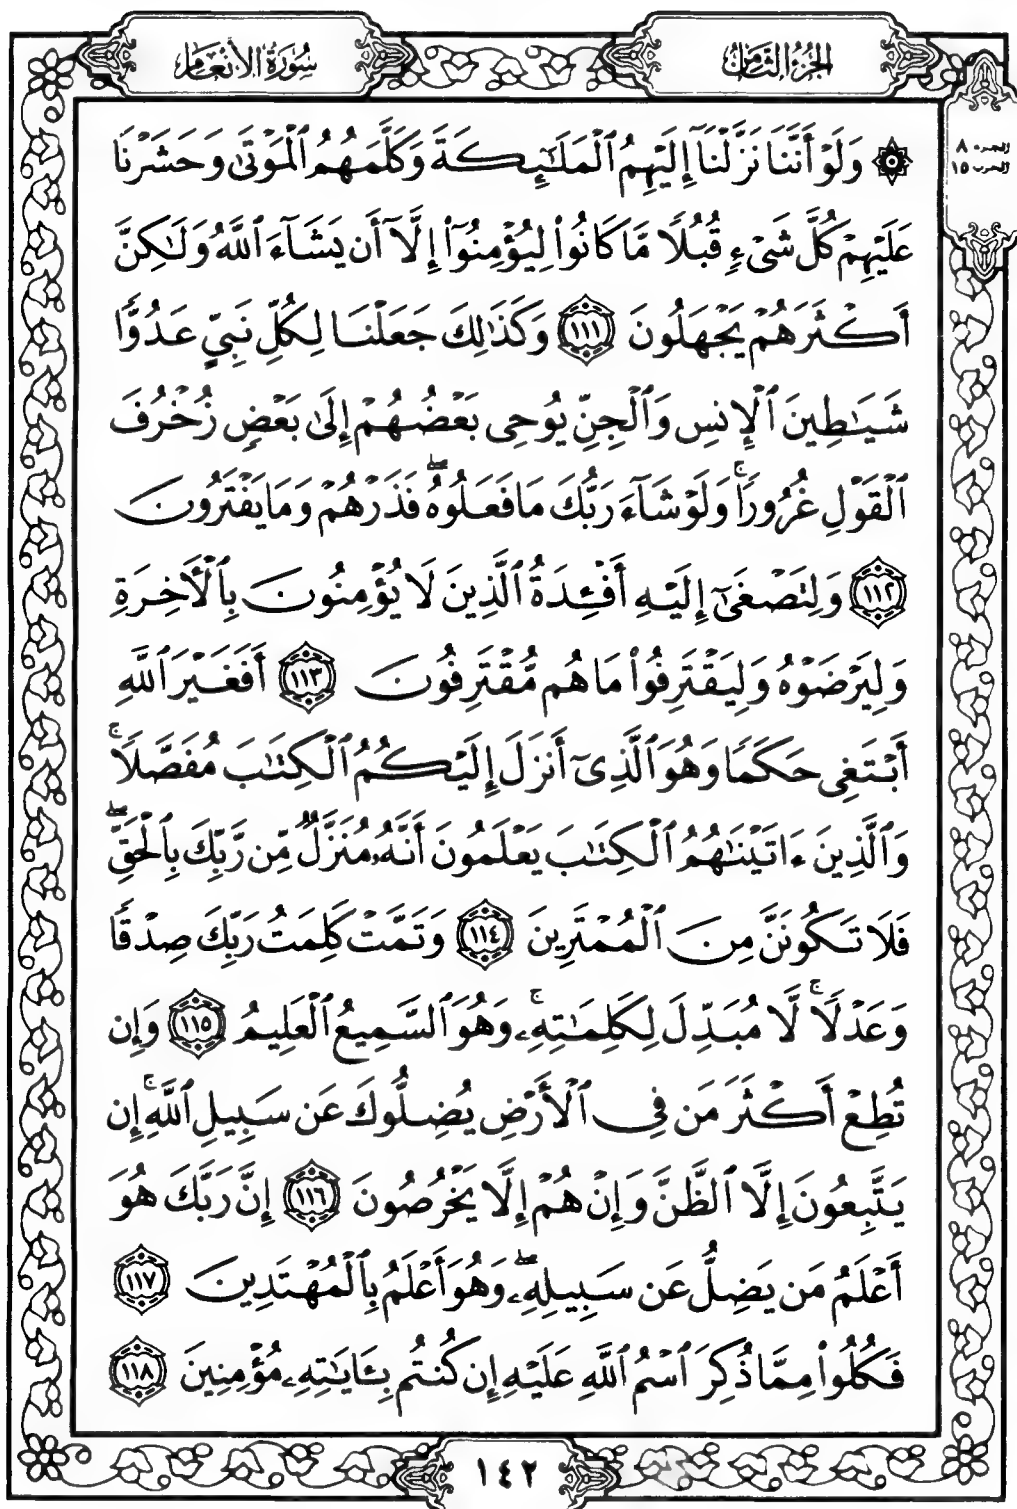 الجزء الثامن
سورة الأنعام
الجزء ٨
الحزب ١٥
۞ وَلَوْ أَنَّنَا نَزَّلْنَآ إِلَيْهِمُ ٱلْمَلَٰٓئِكَةَ وَكَلَّمَهُمُ ٱلْمَوْتَىٰ وَحَشَرْنَا
عَلَيْهِمْ كُلَّ شَىْءٍ قُبُلًا مَّا كَانُوا۟ لِيُؤْمِنُوٓا۟ إِلَّآ أَن يَشَآءَ ٱللَّهُ وَلَٰكِنَّ
أَكْثَرَهُمْ يَجْهَلُونَ ١١١ وَكَذَٰلِكَ جَعَلْنَا لِكُلِّ نَبِىٍّ عَدُوًّا
شَيَٰطِينَ ٱلْإِنسِ وَٱلْجِنِّ يُوحِى بَعْضُهُمْ إِلَىٰ بَعْضٍ زُخْرُفَ
ٱلْقَوْلِ غُرُورًا ۚ وَلَوْ شَآءَ رَبُّكَ مَا فَعَلُوهُ ۖ فَذَرْهُمْ وَمَا يَفْتَرُونَ
١١٢ وَلِتَصْغَىٰٓ إِلَيْهِ أَفْـِٔدَةُ ٱلَّذِينَ لَا يُؤْمِنُونَ بِٱلْـَٔاخِرَةِ
وَلِيَرْضَوْهُ وَلِيَقْتَرِفُوا۟ مَا هُم مُّقْتَرِفُونَ ١١٣ أَفَغَيْرَ ٱللَّهِ
أَبْتَغِى حَكَمًا وَهُوَ ٱلَّذِىٓ أَنزَلَ إِلَيْكُمُ ٱلْكِتَٰبَ مُفَصَّلًا ۚ
وَٱلَّذِينَ ءَاتَيْنَٰهُمُ ٱلْكِتَٰبَ يَعْلَمُونَ أَنَّهُۥ مُنَزَّلٌ مِّن رَّبِّكَ بِٱلْحَقِّ ۖ
فَلَا تَكُونَنَّ مِنَ ٱلْمُمْتَرِينَ ١١٤ وَتَمَّتْ كَلِمَتُ رَبِّكَ صِدْقًا
وَعَدْلًا ۚ لَّا مُبَدِّلَ لِكَلِمَٰتِهِۦ ۚ وَهُوَ ٱلسَّمِيعُ ٱلْعَلِيمُ ١١٥ وَإِن
تُطِعْ أَكْثَرَ مَن فِى ٱلْأَرْضِ يُضِلُّوكَ عَن سَبِيلِ ٱللَّهِ ۚ إِن
يَتَّبِعُونَ إِلَّا ٱلظَّنَّ وَإِنْ هُمْ إِلَّا يَخْرُصُونَ ١١٦ إِنَّ رَبَّكَ هُوَ
أَعْلَمُ مَن يَضِلُّ عَن سَبِيلِهِۦ ۖ وَهُوَ أَعْلَمُ بِٱلْمُهْتَدِينَ ١١٧
فَكُلُوا۟ مِمَّا ذُكِرَ ٱسْمُ ٱللَّهِ عَلَيْهِ إِن كُنتُم بِـَٔايَٰتِهِۦ مُؤْمِنِينَ ١١٨
١٤٢